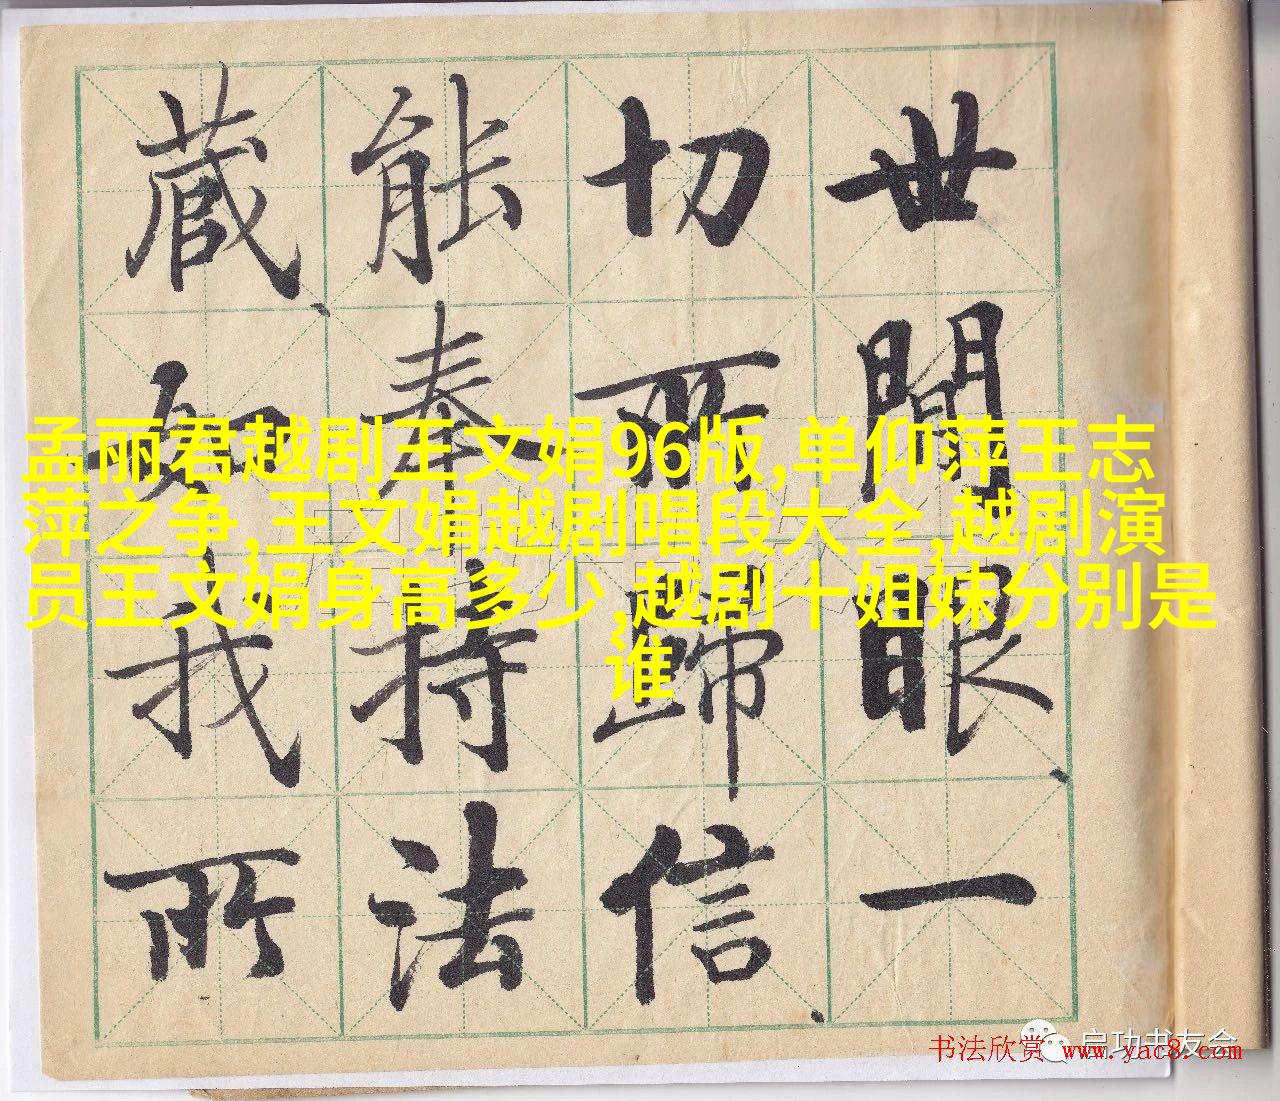 世間眼一
切所歸信
能奉持法
藏如我所
孟丽君越剧王文娟96版,单仰萍王志
萍之争,王文娟越剧唱段大全,越剧演
员王文娟身高多少,越剧十姐妹分别是
谁
启功书友会
书法欣赏 www.yac8.com